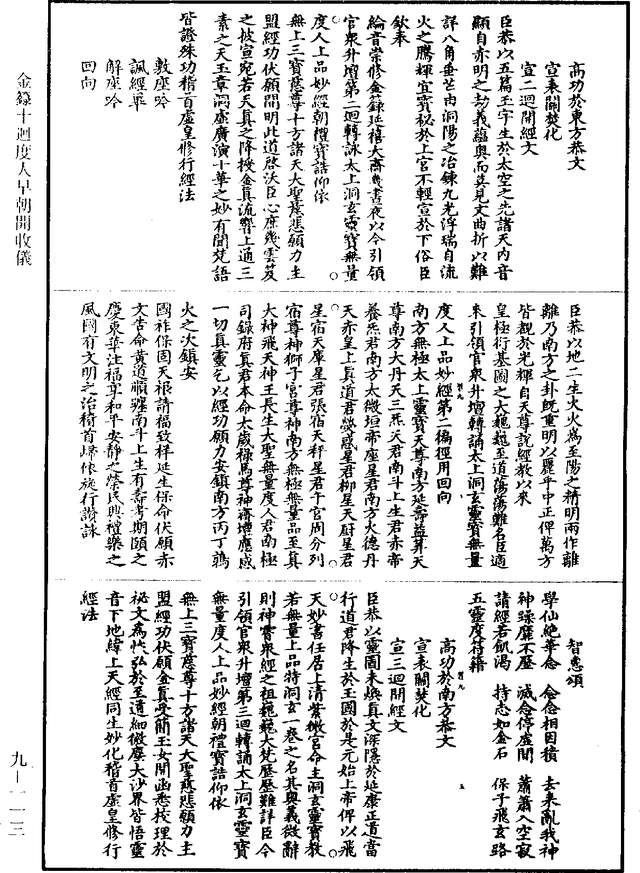 高功於東方恭文
宣表關焚化
宣二迴開經文
臣恭以五篇玉字生於太空之先諸天內音
顯自赤明之劫義蘊奧而莫見文曲折以難
詳八角垂芒由洞陽之冶鍊九光浮瑞自流
火之騰輝宜寶祕於上宮不輕宣於下俗臣
欽奉
綸音崇修金籙延禧大齋幾晝夜以今引領
官衆升壇第二迴轉詠太上洞玄靈寶無量
度人上品妙經朝禮寶誥仰依
無上三寶慈尊十方諸天大聖慈悲願力主
盟經功伏願闡明此道啓沃臣心庶幾雲笈
之披宣宛若天真之降授金真流響上通三
素之天玉章洞虛廣演十華之妙有聞梵語
皆證殊功稽首虛皇修行經法
敷座吟
諷經畢
解座吟
回向
臣恭以地二生火火爲至陽之精明兩作離
離乃南方之卦旣重明以麗乎中正俾萬方
皆覩於光輝自天尊說經教以來
皇極衍基圖之大巍巍至道蕩蕩難名臣適
來引領官衆升壇轉誦太上洞玄靈寶無量
度人上品妙經第二徧徑用回向
南方無極太上靈寶天尊南方延壽益筭天
尊南方大丹天三炁天君南斗上生君赤帝
養炁君南方太微垣帝座星君南方火德丹
天赤皇上真道君熒惑星君柳星天厨星君
星宿天庫星君張宿天秤星君午宮周分列
宿尊神獅子宮尊神南方無極無量品至真
大神飛天神王長生大聖無量度人君南極
司錄府真君本命太歲祿馬尊神齋壇應感
一切真靈乞以經功願力安鎮南方丙丁鶉
火之次鎮安
國祚保固天根請福致祥延生保命伏願赤
文告命黃道順躔南斗上生有壽考期頤之
慶東華注福享和平安靜之榮民興禮樂之
風國有文明之治稽首歸依旋行讚詠
智慧頌
學仙絶華念　念念相因積　去來亂我神
神躁靡不歷　滅念停虛閑　蕭蕭入空寂
請經若飢渴　持志如金石　保子飛玄路
五靈度符籍
高功於南方恭文
宣表關焚化
宣三迴開經文
臣恭以靈圖未煥真文深隱於延康正道當
行道君降生於玉國於是元始上帝俾以飛
天妙書任居上清紫微宮命主洞玄靈寶教
若無量上品特洞玄一卷之名其奧義微辭
則神霄衆經之祖巍巍大梵歷歷難詳臣今
引領官衆升壇第三迴轉誦太上洞玄靈寶
無量度人上品妙經朝禮寶誥仰依
無上三寶慈尊十方諸天大聖慈悲願力主
盟經功伏願金真受簡玉女開函悉按理於
祕文爲快弘於至道細微塵大沙界皆悟靈
音下地緯上天經同生妙化稽首虛皇修行
經法
金籙十迴度人早朝開收儀
九－一一三